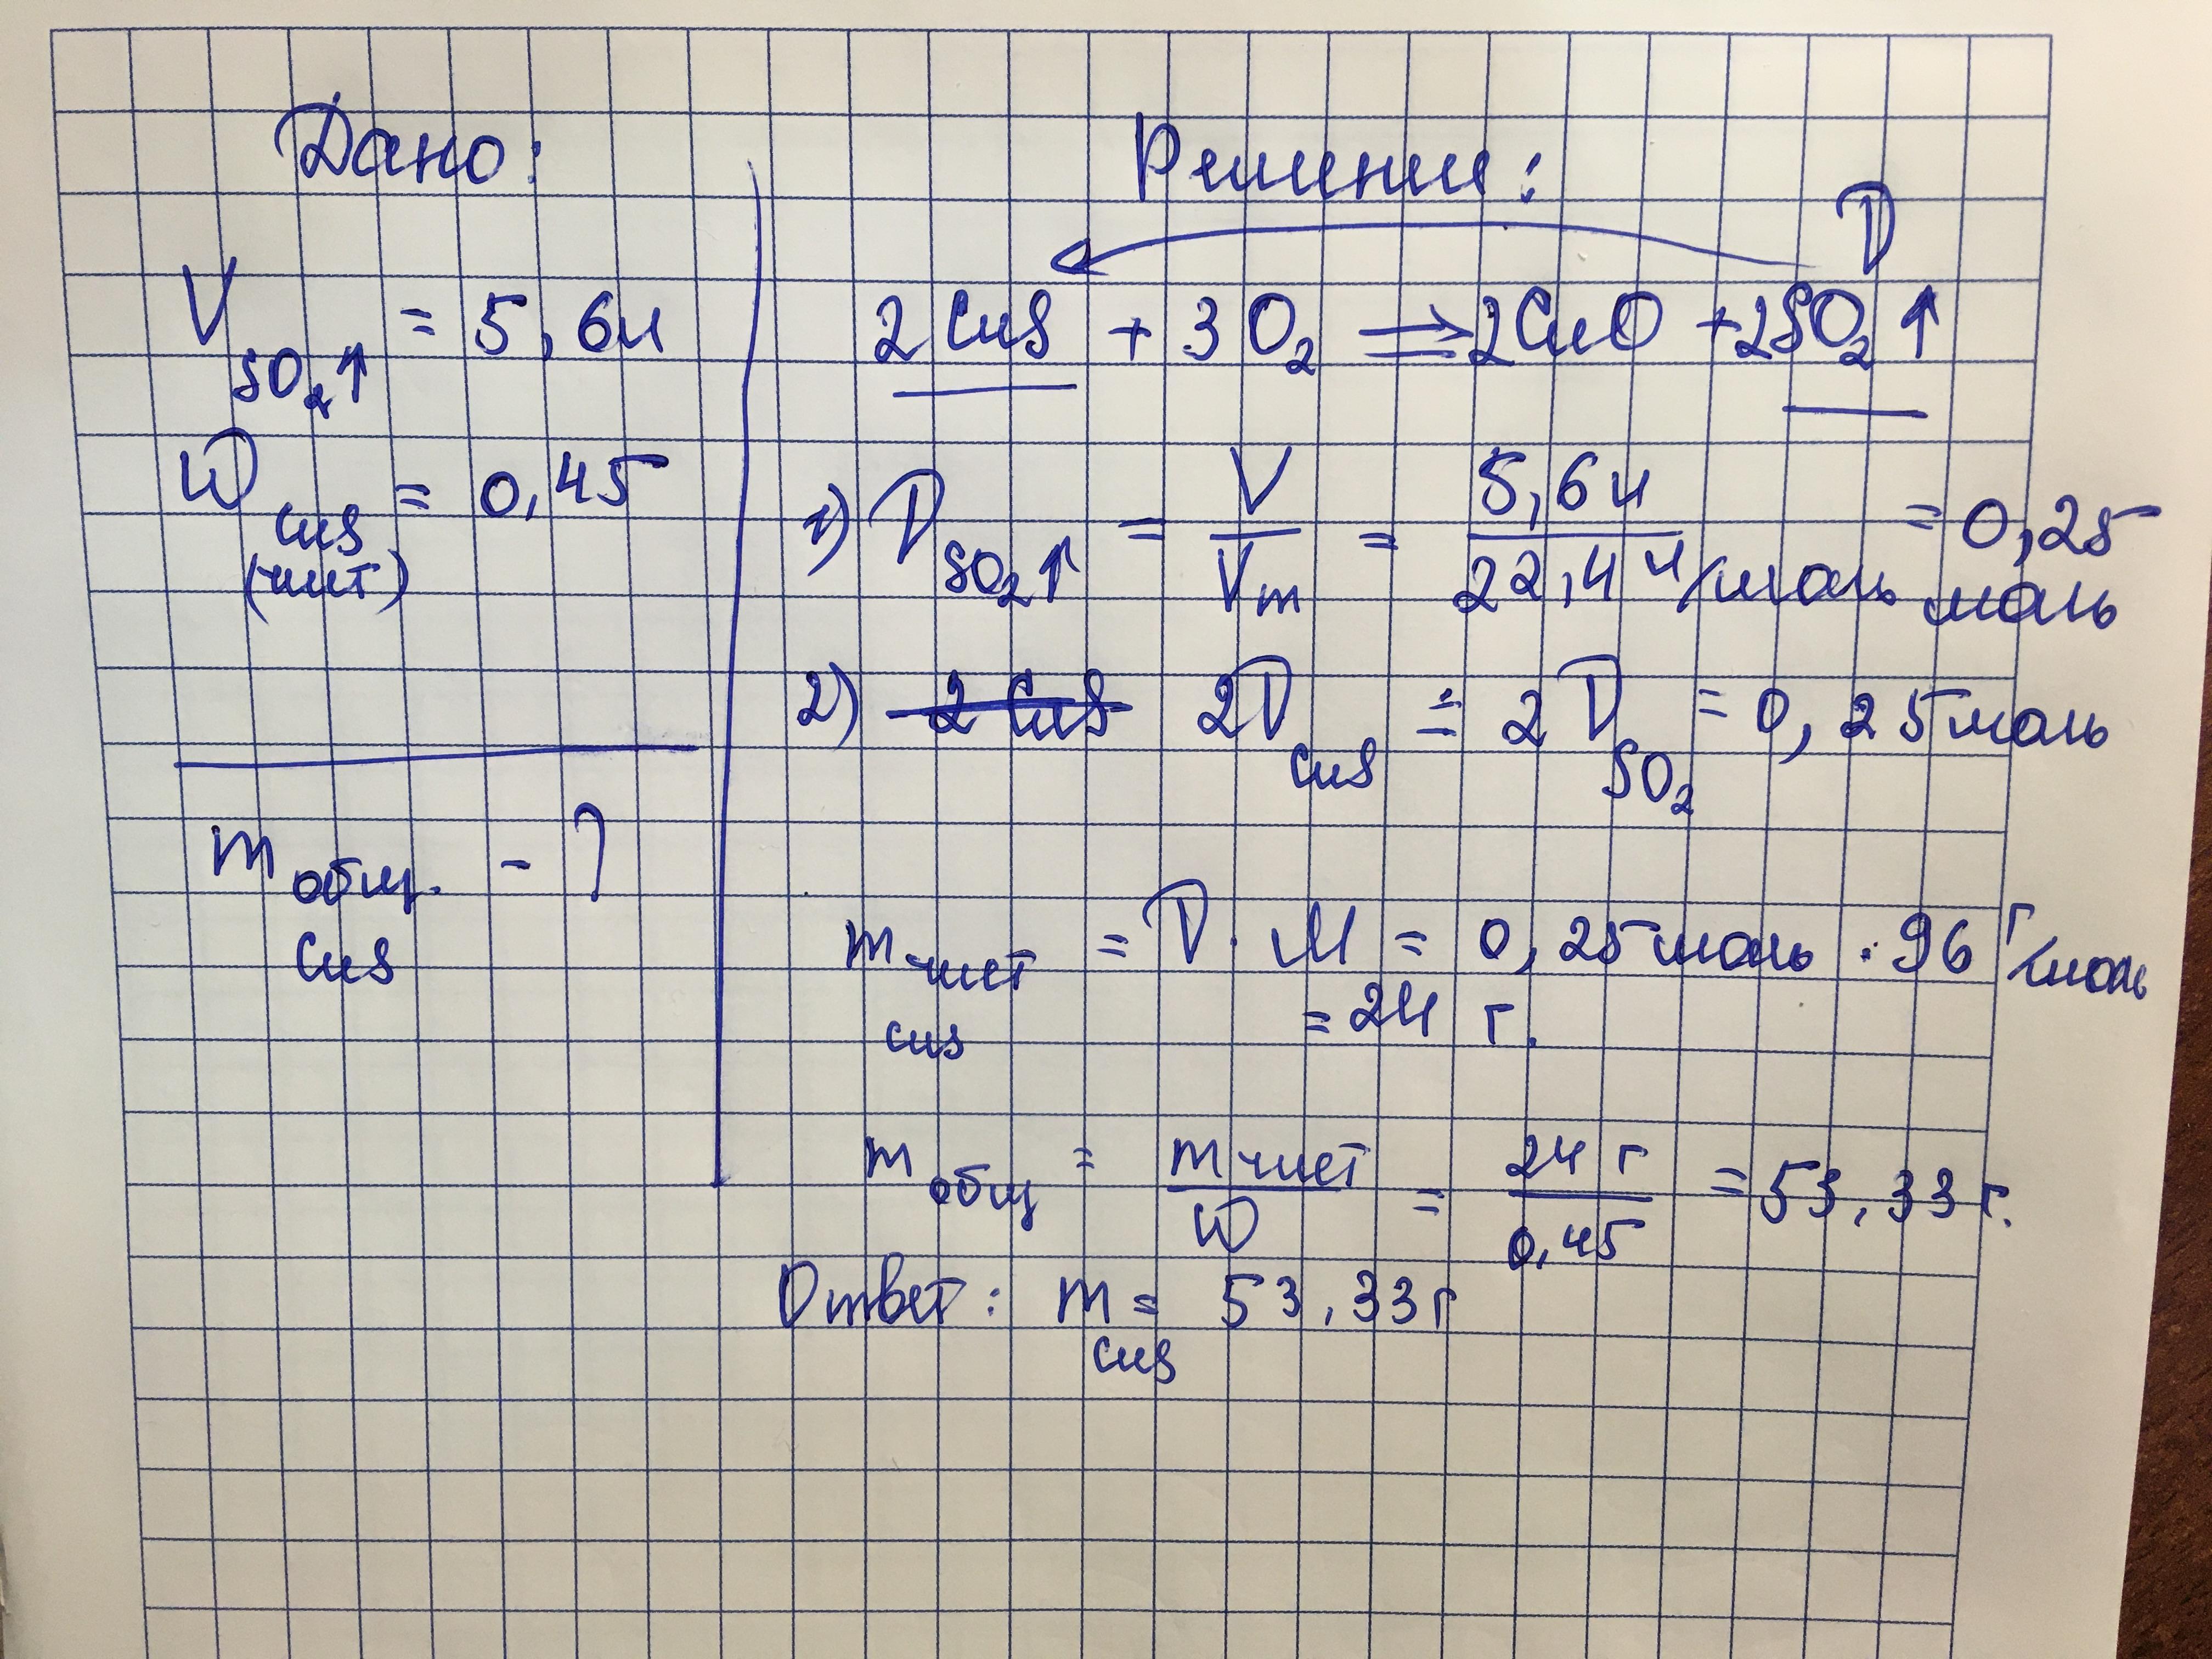 Дано:
V SO₂↑ = 5,6л
W CuS (чист) = 0,45
m общ. CuS - ?
Решение:
ν
2CuS + 3O₂ => 2CuO + 2SO₂↑
1) ν SO₂↑ = V/Vm = 5,6л / 22,4 л/моль = 0,25 моль
2) ~~2 CuS~~ 2ν CuS = 2ν SO₂ = 0,25моль
m чист CuS = ν · M = 0,25моль · 96 г/моль
= 24 г.
m общ = m чист / W = 24 г / 0,45 = 53,33 г.
Ответ: m CuS = 53,33г